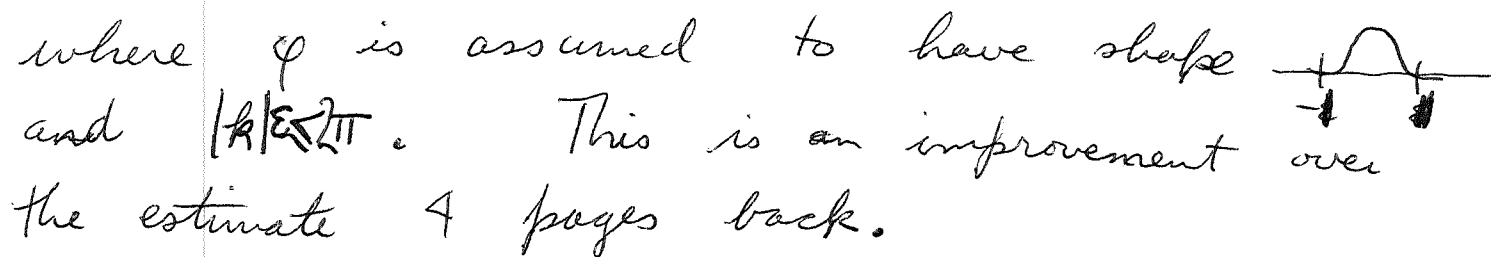 where φ is assumed to have shape
and |k|ε<2π. This is an improvement over
the estimate 4 pages back.